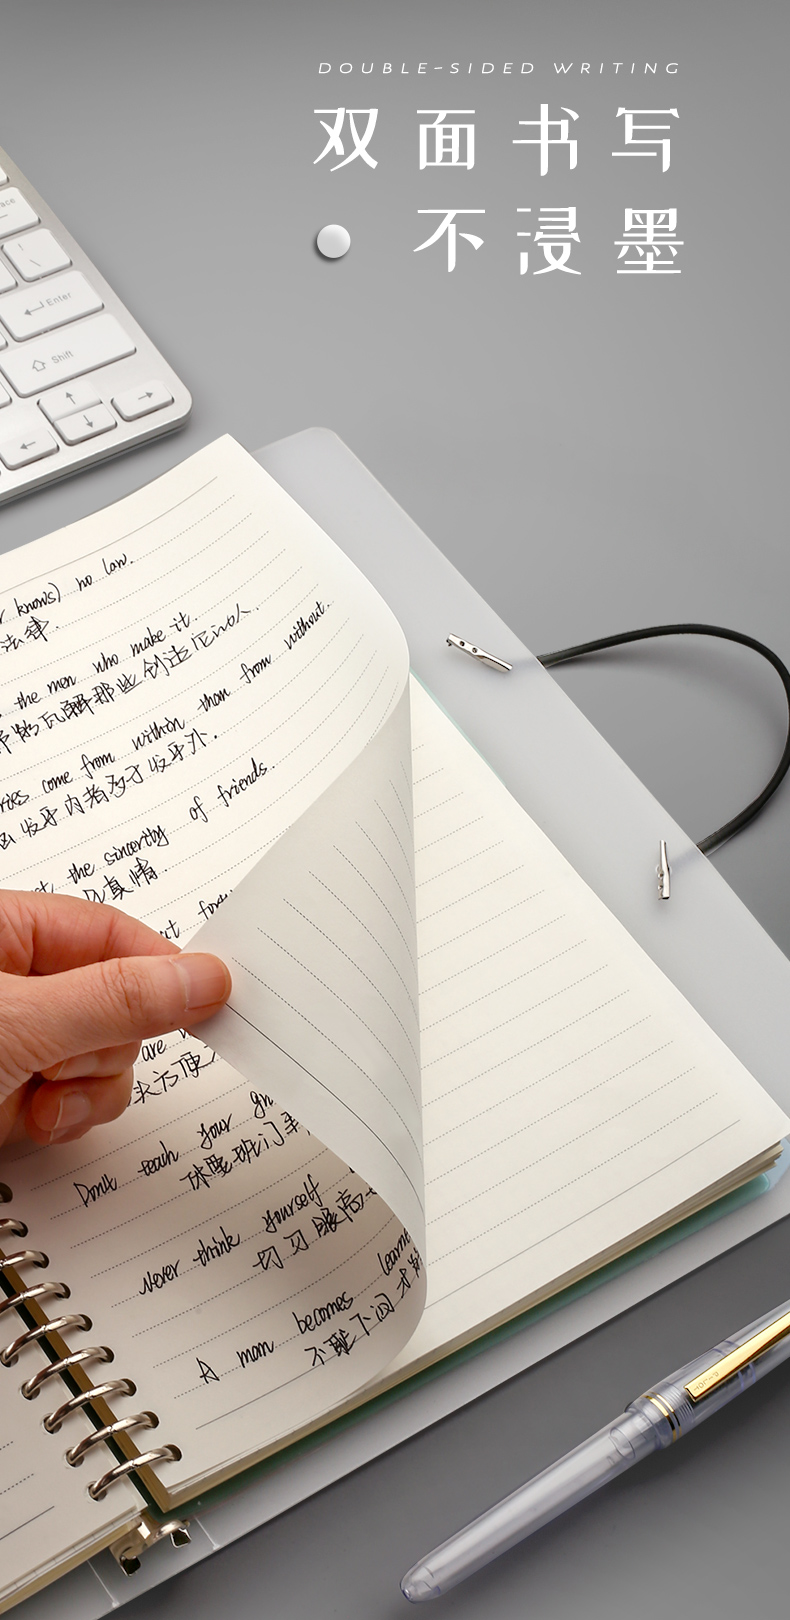 DOUBLE-SIDED WRITING
双面书写
不浸墨
Enter
Shift
knows) no law.
法律.
the men who make it.
的瓦解那些创造它的人.
come from within than from without.
发于内者多于发于外.
the sincerity of friends.
真情
are
Don't teach your
班门
Never think yourself
切勿眼高
A man becomes
不耻下问才